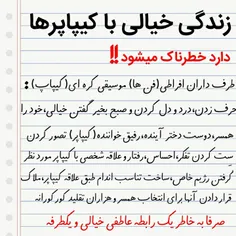 زندگی خیالی با کیپاپرها
دارد خطرناک میشود !!
طرف داران افراطی(فن ها) موسیقی کره ای(کیپاپ) :
حرف زدن، درد و دل کردن و صبح بغیر گفتن خیالی،خود را
همسر،دوست دختر آینده،رفیق خواننده(کیپاپر) تصور کردن
ست کردن تفکر،احساس،رفتار و علاقه شخصی با کیپاپر مورد نظر
گرفتن رژیم خاص،ساخت تناسب اندام طبق علاقه کیپاپر،ملاک
قرار دادن آنها برای انتخاب همسر و هزاران تقلید کورکورانه
صرفا به خاطر یک رابطه عاطفی خیالی و یکطرفه